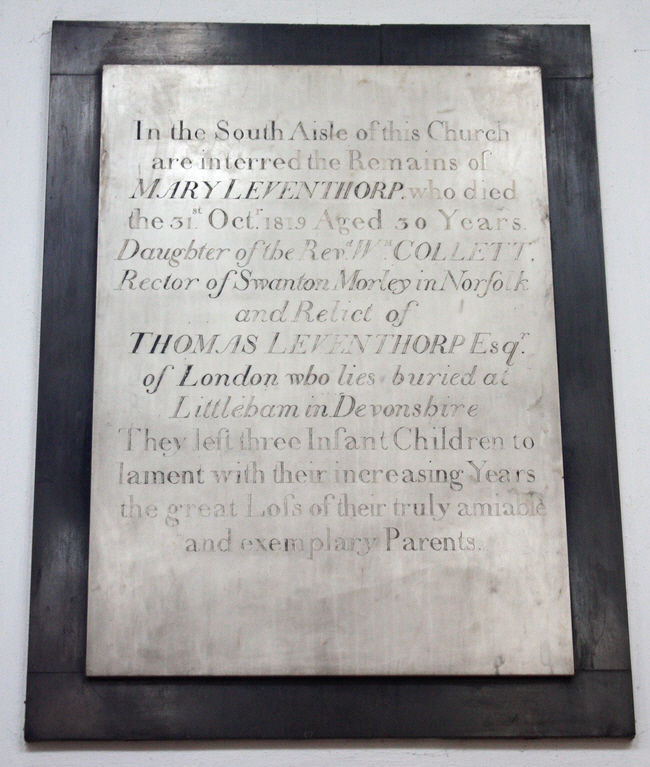 In the South Aisle of this Church
are interred the Remains of
MARY LEVENTHORP. who died
the 31.st Oct.r 1819 Aged 30 Years.
Daughter of the Rev.d W.m COLLETT.
Rector of Swanton Morley in Norfolk
and Relict of
THOMAS LEVENTHORP Esq.r
of London who lies buried at
Littleham in Devonshire
They left three Infant Children to
lament with their increasing Years
the great Loſs of their truly amiable
and exemplary Parents.